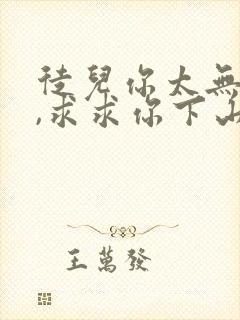 徒兒你太無
,求求你下山
王萬發